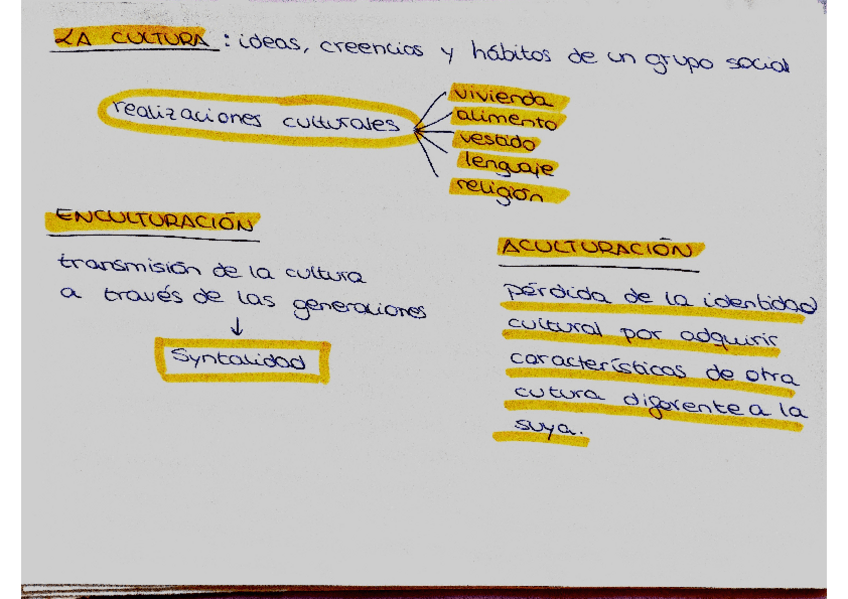 LA CULTURA : ideas, creencias y hábitos de un grupo social
realizaciones culturales
vivienda
alimento
vestido
lenguaje
religión
ENCULTURACIÓN
transmisión de la cultura
a través de las generaciones
↓
Syntalidad
ACULTURACIÓN
pérdida de la identidad
cultural por adquirir
características de otra
cutura diferente a la
suya.